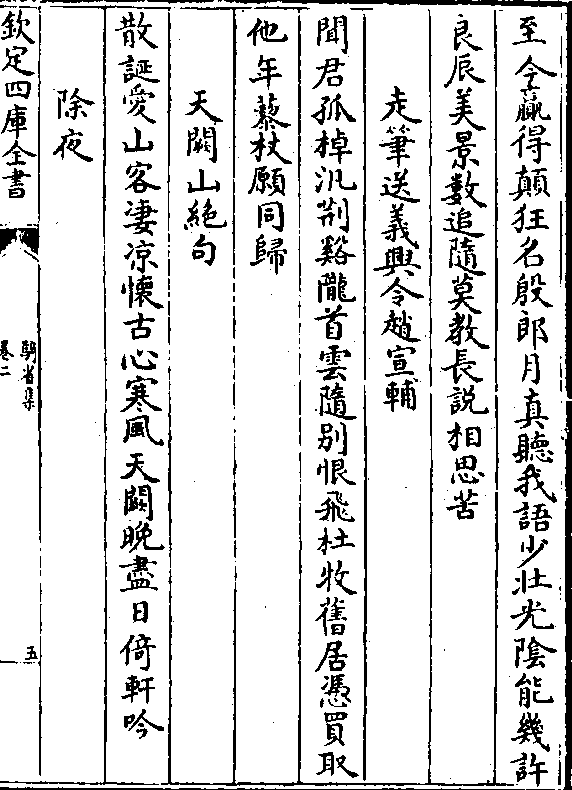 至今贏得顛狂名殷郎月真聽我語少壯光陰能幾許
良辰美景數追隨莫教長説相思苦
走筆送義興令趙宣輔
聞君孤棹汎荆谿隴首雲隨别恨飛杜牧舊居憑買取
他年藜杖願同歸
天闕山絶句
散誕愛山客凄凉懷古心寒風天闕晚盡日倚軒吟
除夜
欽定四庫全書
騎省集
卷二
五